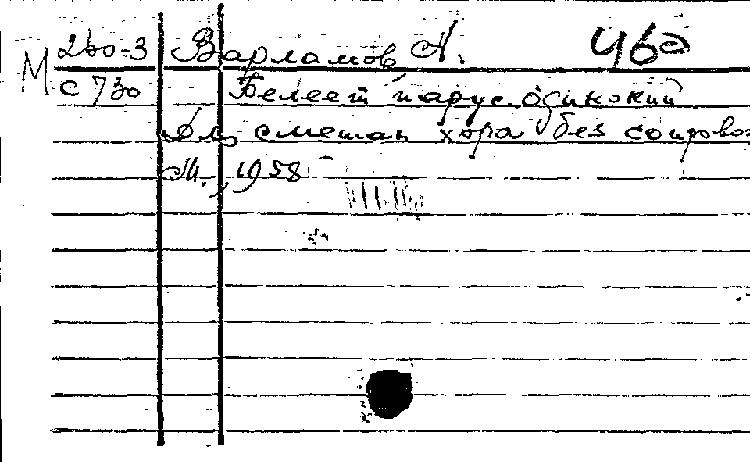 М 260-3 Варламов, А. Ч6д
С 730 Белеет парус одинокий
Для смешан хора без сопровож
М., 1958